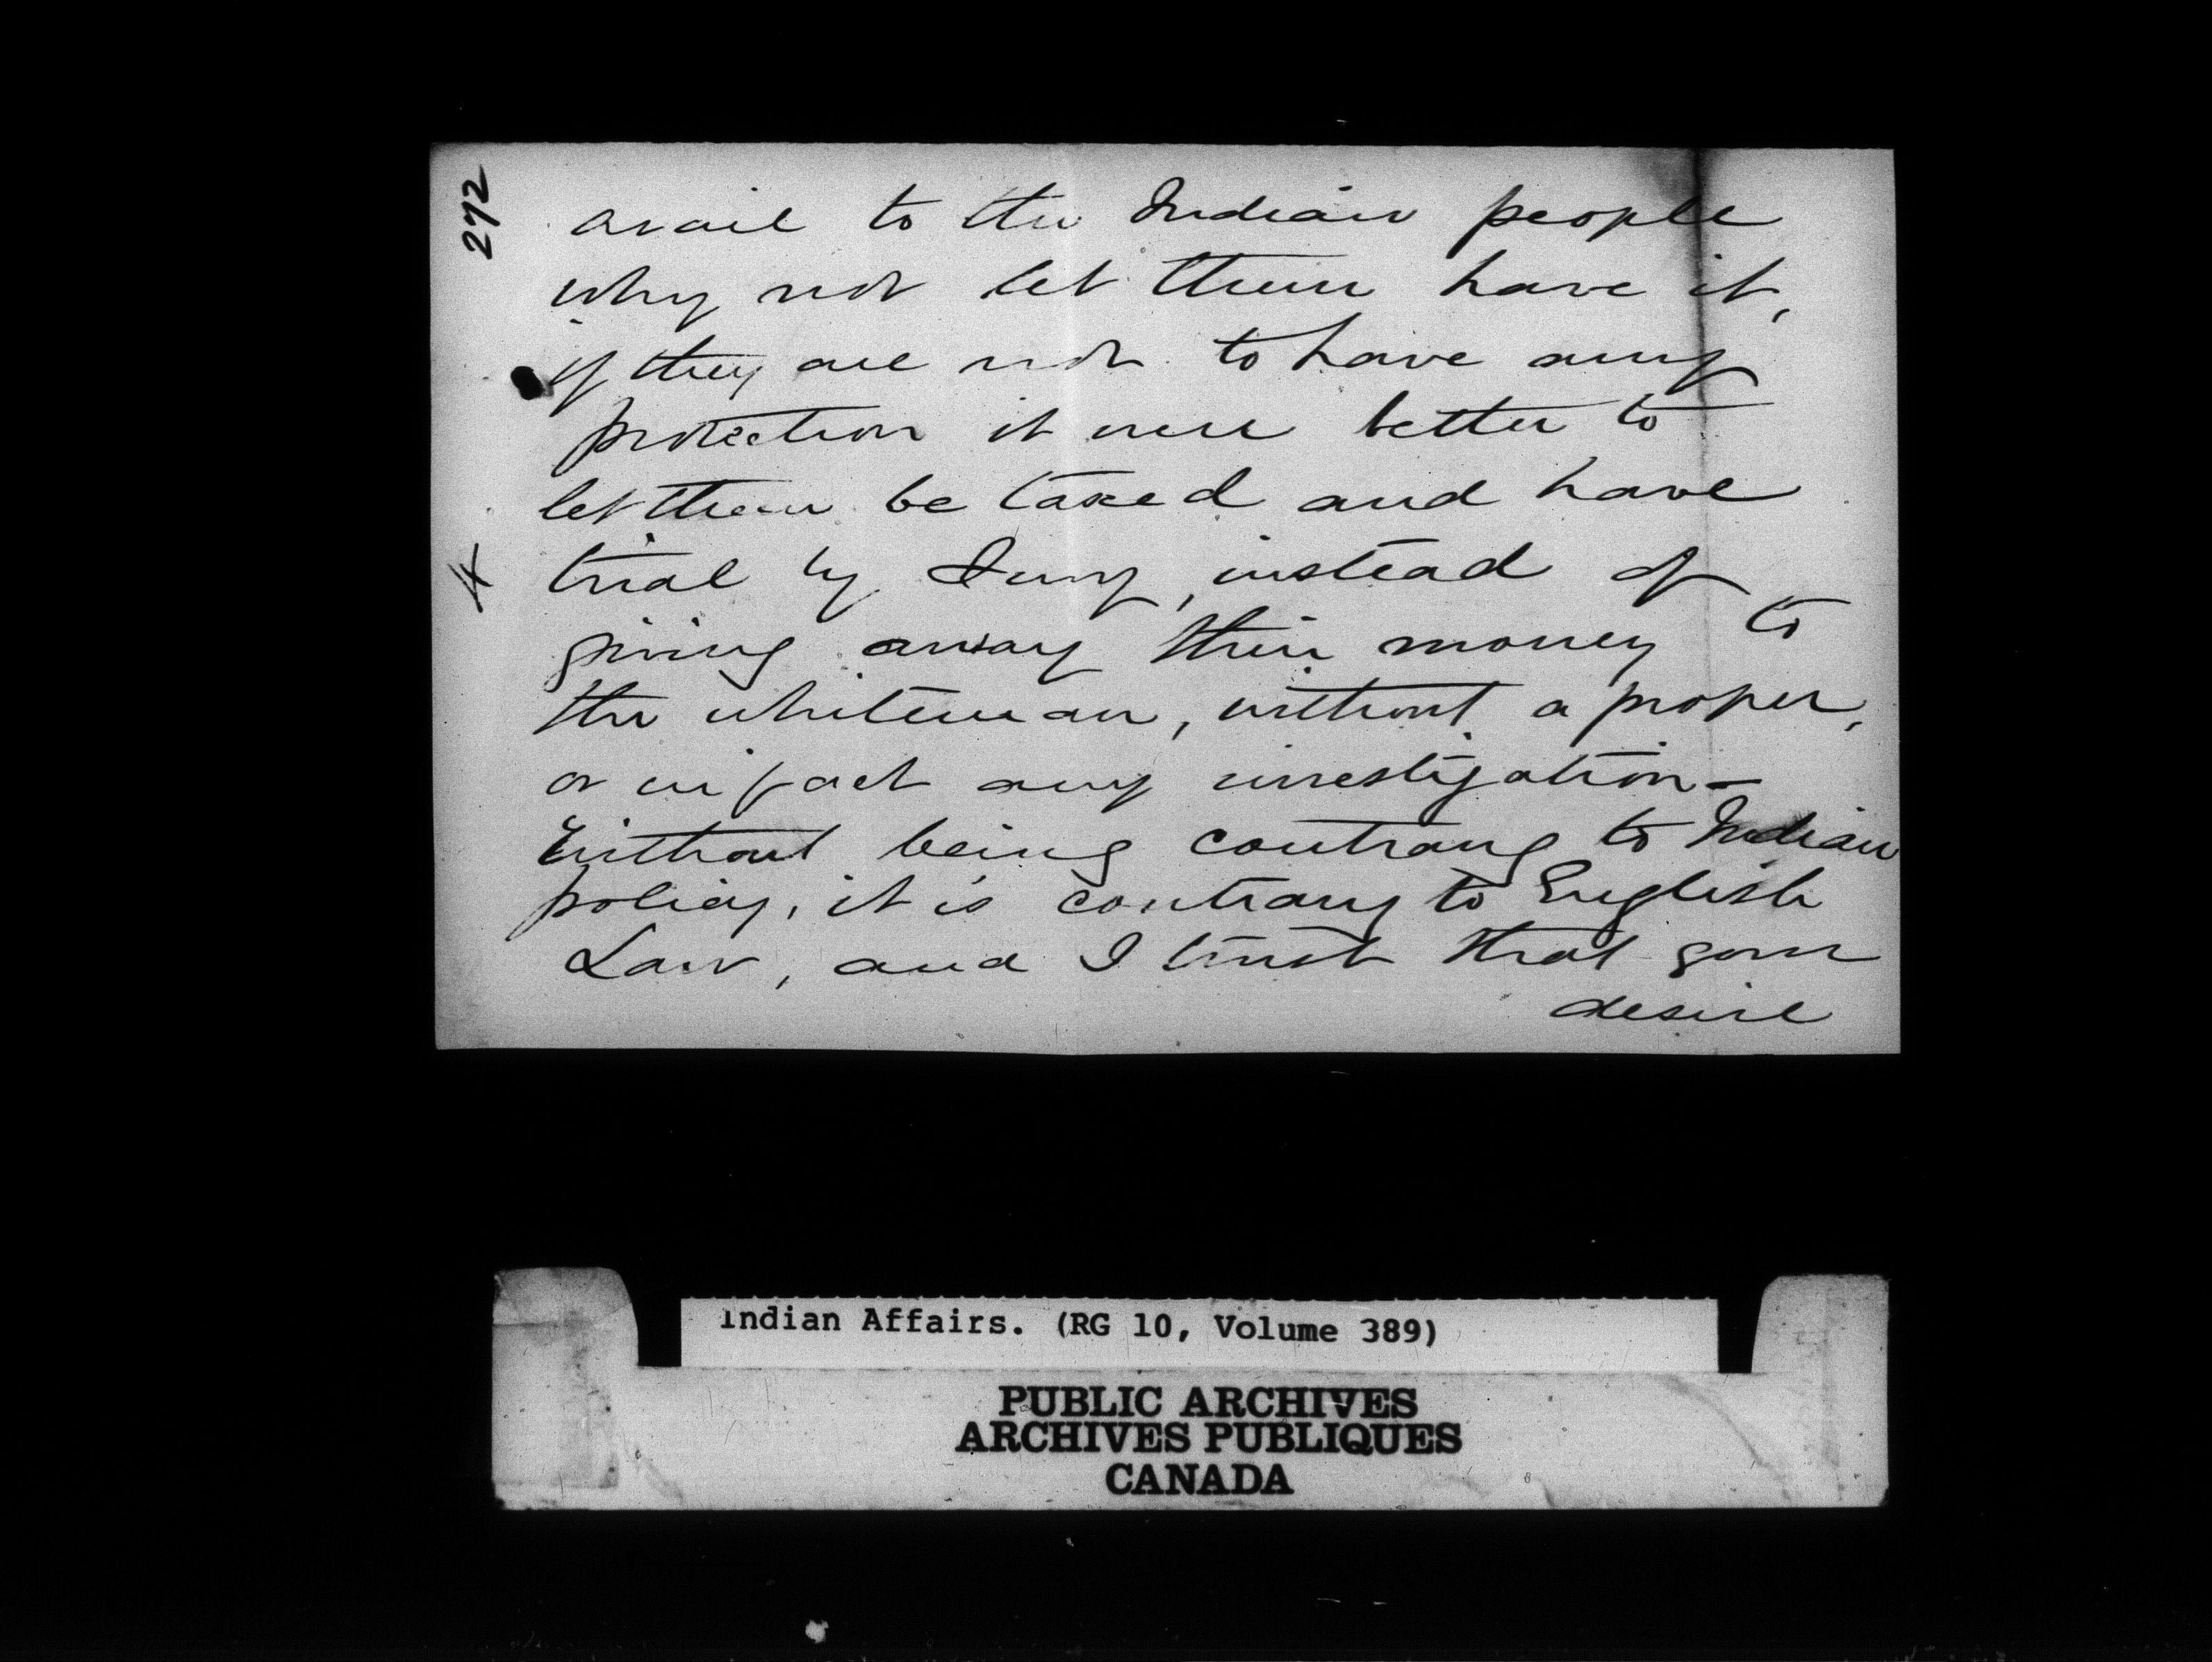 272
avail to the Indian people
why not let them have it,
if they are not to have any
protection it were better to
let them be taxed and have
4
trial by Jury, instead of
giving away their money to
the whiteman, without a proper,
or in fact any investigation—
Without being contrary to Indian
policy, it is contrary to English
Law, and I trust that your
desire
Indian Affairs. (RG 10, Volume 389)
PUBLIC ARCHIVES
ARCHIVES PUBLIQUES
CANADA